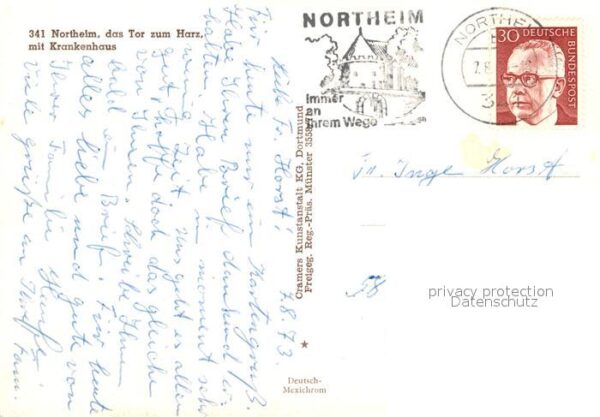 341 Northeim, das Tor zum Harz,
mit Krankenhaus
7.8.73.
Liebe Fr. Horst!
Für heute nur ein Kartengruß.
Habe Ihren Brief dankend er
halten. Habe im moment sehr
wenig Zeit. uns geht es allen
gut hoffe doch das gleiche
von Ihnen. Schreibe Ihnen
bald ein Brief. Für heute
alles liebe und gute von
Ihrer Familie
viele grüße an Ihre
Fam.
Cramers Kunstanstalt KG, Dortmund
Freigeg. Reg.-Präs. Münster
Deutsch-
Mexichrom
NORTHEIM
Immer
an
Ihrem Wege
NORTHEIM
30 DEUTSCHE
BUNDESPOST
Fr. Inge Horst
58
privacy protection
Datenschutz